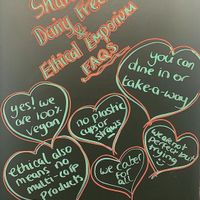 Dairy Free
&
Ethical Emporium
FAQs
yes! we
are 100%
vegan
no plastic
cups or
straws
you can
dine in or
take-a-way
ethical also
means no
multi-corp
products
we cater
for all
we are not
perfect but
trying